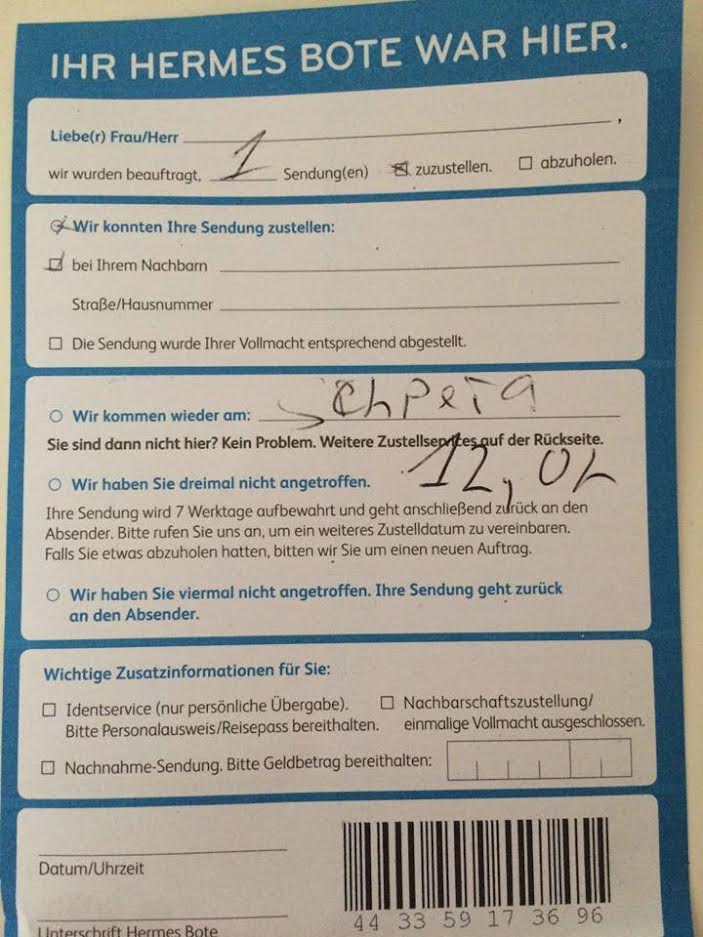 IHR HERMES BOTE WAR HIER.
Liebe(r) Frau/Herr ,
wir wurden beauftragt, 1 Sendung(en) zuzustellen. abzuholen.
Wir konnten Ihre Sendung zustellen:
bei Ihrem Nachbarn
Straße/Hausnummer
Die Sendung wurde Ihrer Vollmacht entsprechend abgestellt.
Wir kommen wieder am:
Sie sind dann nicht hier? Kein Problem. Weitere Zustellservices auf der Rückseite.
Wir haben Sie dreimal nicht angetroffen.
Ihre Sendung wird 7 Werktage aufbewahrt und geht anschließend zurück an den
Absender. Bitte rufen Sie uns an, um ein weiteres Zustelldatum zu vereinbaren.
Falls Sie etwas abzuholen hatten, bitten wir Sie um einen neuen Auftrag.
Wir haben Sie viermal nicht angetroffen. Ihre Sendung geht zurück
an den Absender.
Wichtige Zusatzinformationen für Sie:
Identservice (nur persönliche Übergabe). Nachbarschaftszustellung/
Bitte Personalausweis/Reisepass bereithalten. einmalige Vollmacht ausgeschlossen.
Nachnahme-Sendung. Bitte Geldbetrag bereithalten:
Datum/Uhrzeit
44 33 59 17 36 96
Unterschrift Hermes Bote